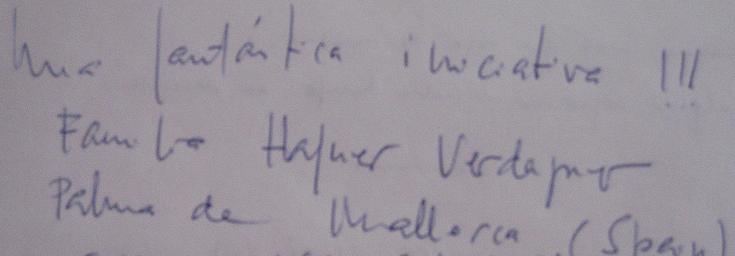 Una fantástica iniciativa !!!
Familia Hafner Verdaguer
Palma de Mallorca (Spain)